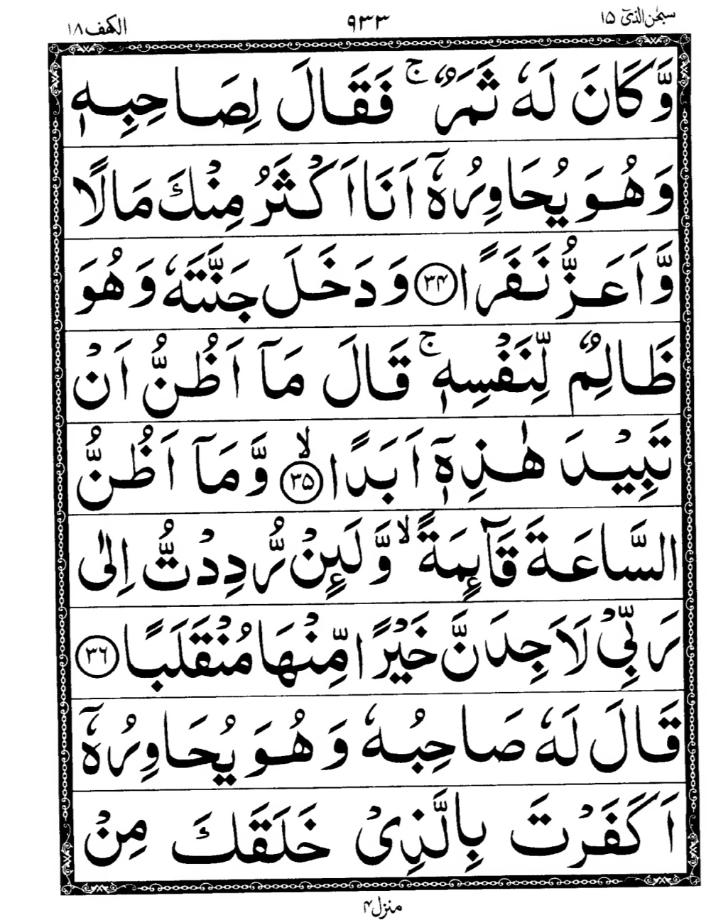 سبحٰن الذیٓ ۱۵
۹۳۳
الکهف ۱۸
وَّكَانَ لَهٗ ثَمَرٌ ۚ فَقَالَ لِصَاحِبِهٖ
وَهُوَ يُحَاوِرُهٗۤ اَنَا اَكْثَرُ مِنْكَ مَالًا
وَّاَعَزُّ نَفَرًا ﴿۳۴﴾ وَدَخَلَ جَنَّتَهٗ وَهُوَ
ظَالِمٌ لِّنَفْسِهٖ ۚ قَالَ مَاۤ اَظُنُّ اَنْ
تَبِيْدَ هٰذِهٖۤ اَبَدًا ۙ﴿۳۵﴾ وَّمَاۤ اَظُنُّ
السَّاعَةَ قَآئِمَةً ۙ وَّلَئِنْ رُّدِدْتُّ اِلٰى
رَبِّيْ لَاَجِدَنَّ خَيْرًا مِّنْهَا مُنْقَلَبًا ﴿۳۶﴾
قَالَ لَهٗ صَاحِبُهٗ وَهُوَ يُحَاوِرُهٗۤ
اَكَفَرْتَ بِالَّذِيْ خَلَقَكَ مِنْ
منزل ۴